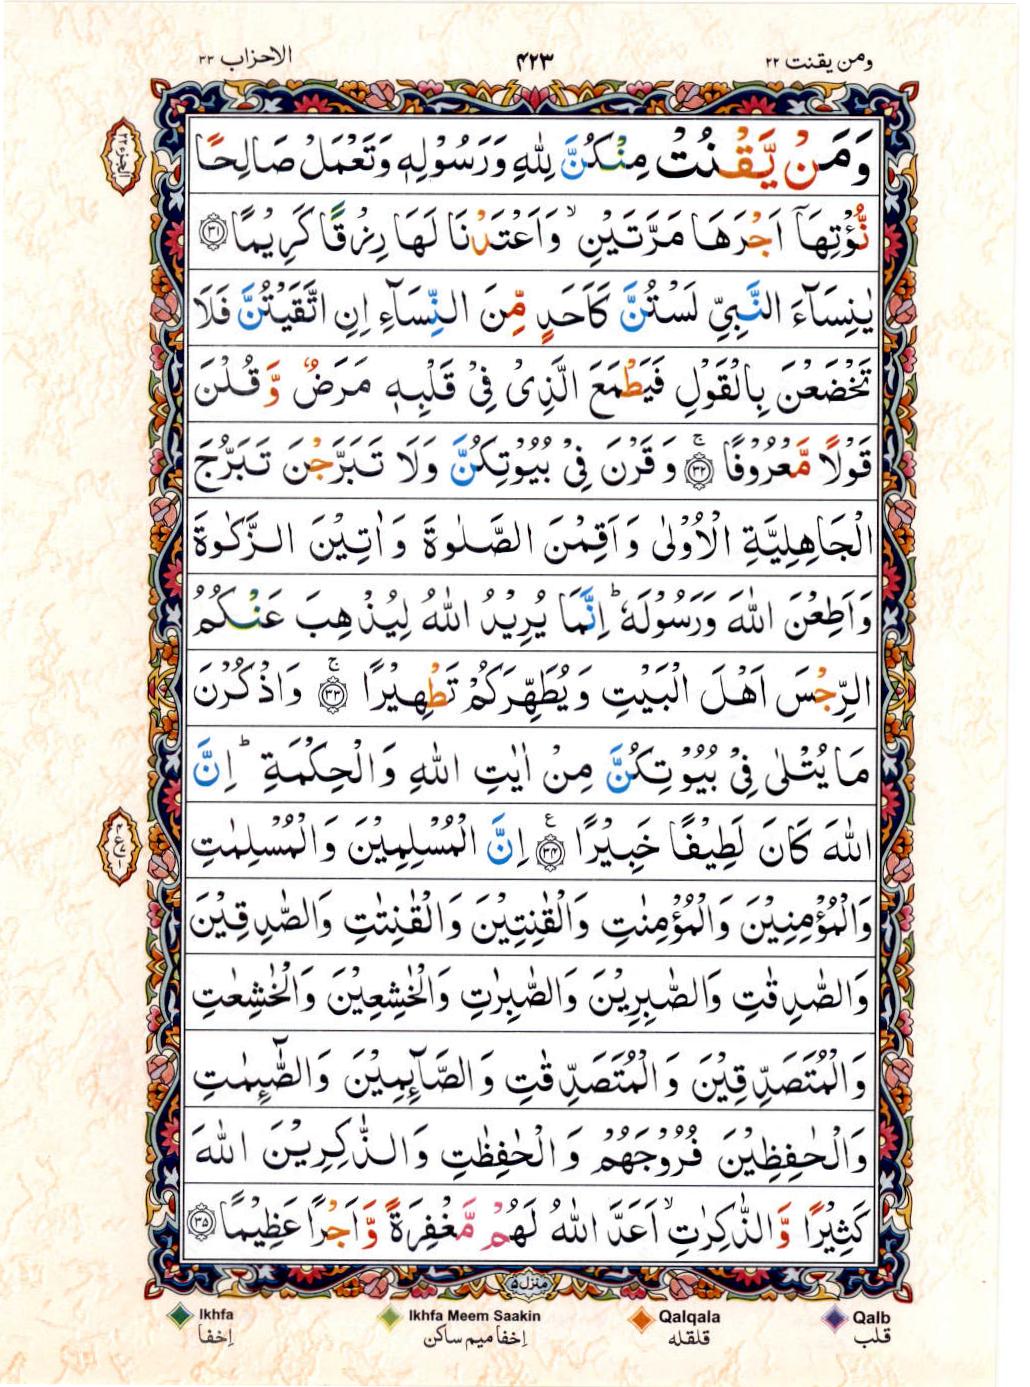 ومن یقنت ۲۲
۴۲۳
الاحزاب ۳۳
وَمَنْ يَّقْنُتْ مِنْكُنَّ لِلّٰهِ وَرَسُوْلِهٖ وَتَعْمَلْ صَالِحًا
نُّؤْتِهَاۤ اَجْرَهَا مَرَّتَيْنِ ۙ وَاَعْتَدْنَا لَهَا رِزْقًا كَرِيْمًا ۝۳۱
يٰنِسَآءَ النَّبِيِّ لَسْتُنَّ كَاَحَدٍ مِّنَ النِّسَآءِ اِنِ اتَّقَيْتُنَّ فَلَا
تَخْضَعْنَ بِالْقَوْلِ فَيَطْمَعَ الَّذِىْ فِىْ قَلْبِهٖ مَرَضٌ وَّ قُلْنَ
قَوْلًا مَّعْرُوْفًا ۝۳۲ۚ وَقَرْنَ فِىْ بُيُوْتِكُنَّ وَلَا تَبَرَّجْنَ تَبَرُّجَ
الْجَاهِلِيَّةِ الْاُوْلٰى وَاَقِمْنَ الصَّلٰوةَ وَاٰتِيْنَ الزَّكٰوةَ
وَاَطِعْنَ اللّٰهَ وَرَسُوْلَهٗ ؕ اِنَّمَا يُرِيْدُ اللّٰهُ لِيُذْهِبَ عَنْكُمُ
الرِّجْسَ اَهْلَ الْبَيْتِ وَيُطَهِّرَكُمْ تَطْهِيْرًا ۝۳۳ۚ وَاذْكُرْنَ
مَا يُتْلٰى فِىْ بُيُوْتِكُنَّ مِنْ اٰيٰتِ اللّٰهِ وَالْحِكْمَةِ ؕ اِنَّ
اللّٰهَ كَانَ لَطِيْفًا خَبِيْرًا ۝۳۴ع اِنَّ الْمُسْلِمِيْنَ وَالْمُسْلِمٰتِ
وَالْمُؤْمِنِيْنَ وَالْمُؤْمِنٰتِ وَالْقٰنِتِيْنَ وَالْقٰنِتٰتِ وَالصّٰدِقِيْنَ
وَالصّٰدِقٰتِ وَالصّٰبِرِيْنَ وَالصّٰبِرٰتِ وَالْخٰشِعِيْنَ وَالْخٰشِعٰتِ
وَالْمُتَصَدِّقِيْنَ وَالْمُتَصَدِّقٰتِ وَالصَّآئِمِيْنَ وَالصّٰٓئِمٰتِ
وَالْحٰفِظِيْنَ فُرُوْجَهُمْ وَالْحٰفِظٰتِ وَالذّٰكِرِيْنَ اللّٰهَ
كَثِيْرًا وَّالذّٰكِرٰتِ ۙ اَعَدَّ اللّٰهُ لَهُمْ مَّغْفِرَةً وَّاَجْرًا عَظِيْمًا ۝۳۵
منزل ۵
Ikhfa
إخفا
Ikhfa Meem Saakin
إخفا ميم ساكن
Qalqala
قلقله
Qalb
قلب